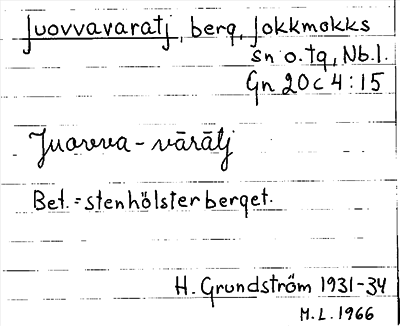 Juovvavaratj, berg, Jokkmokks
sn o. tg, Nb. l.
Gn 20 C 4:15
Juovva-vārātj
Bet. = stenhölsterberget.
H. Grundström 1931-34
M.L. 1966